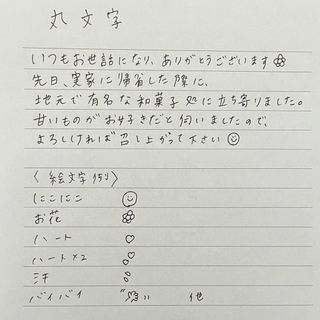 丸文字
いつもお世話になり、ありがとうございます
先日、実家に帰省した際に、
地元で有名な和菓子処に立ち寄りました。
甘いものがお好きだと伺いましたので、
よろしければ召し上がって下さい
〈絵文字例〉
にこにこ
お花
ハート
ハート×2
汗
バイバイ 他